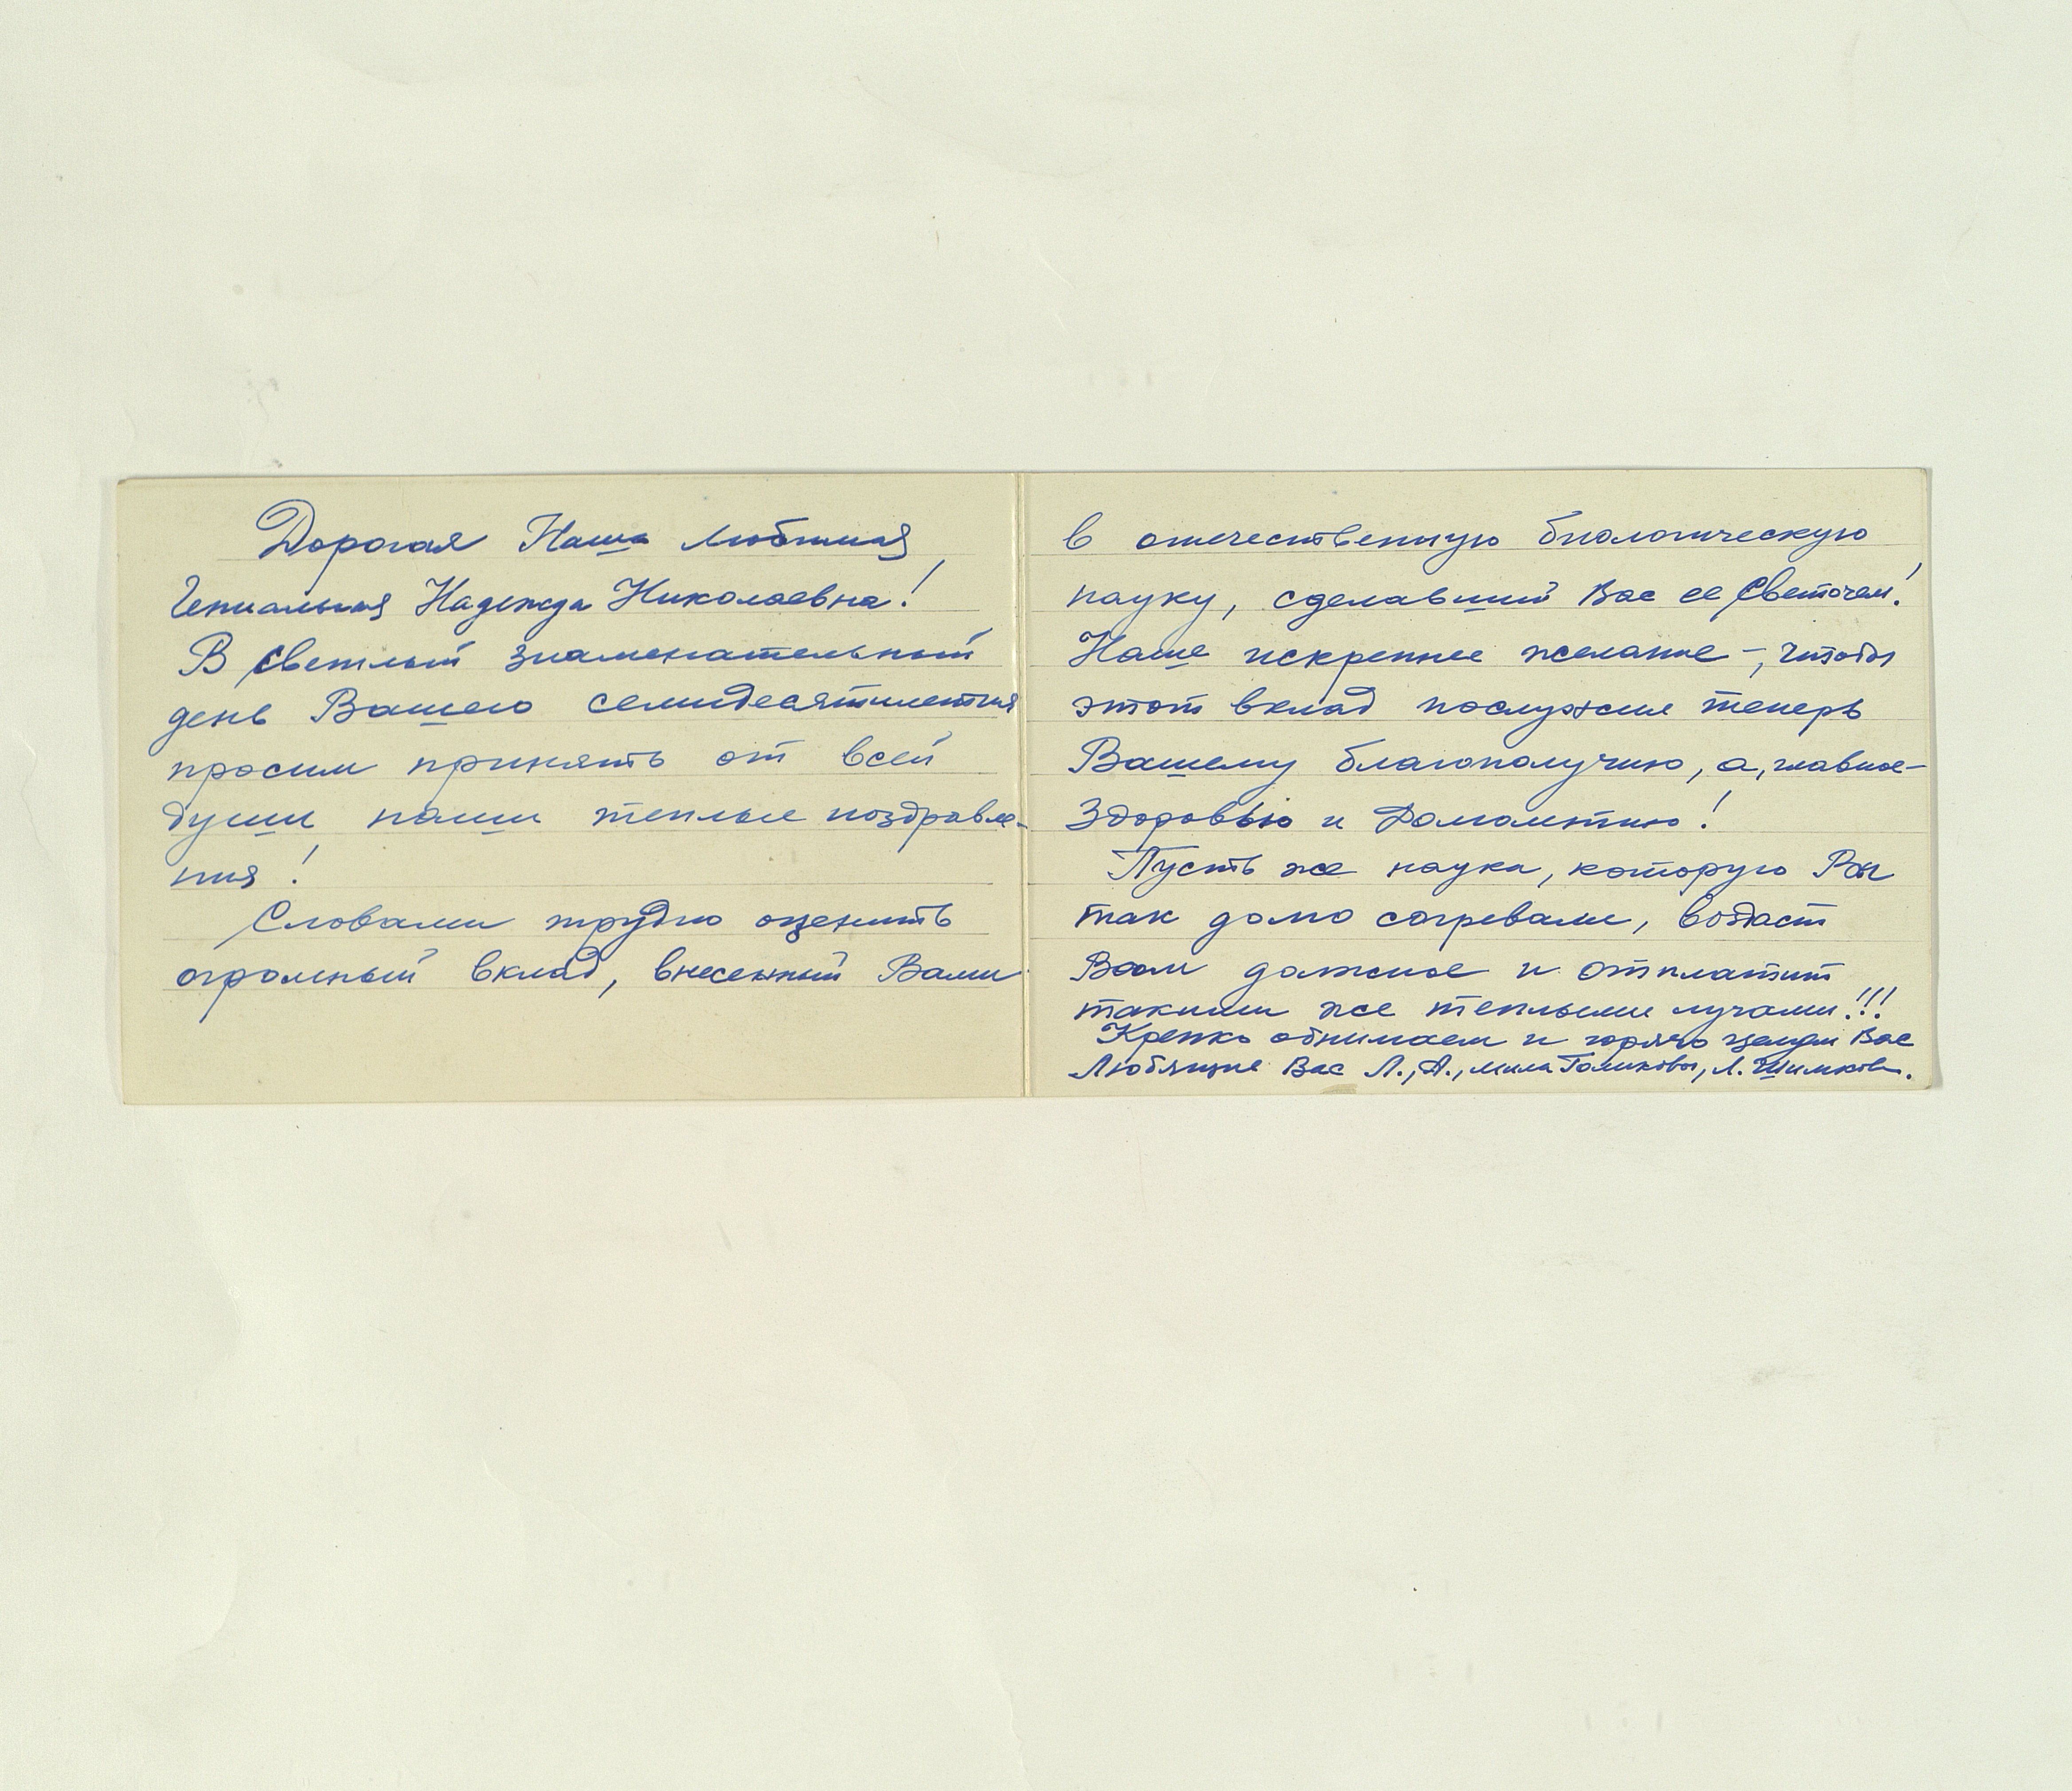 Дорогая Наша Любимая
Гениальная Надежда Николаевна!
В светлый знаменательный
день Вашего семидесятилетия
просим принять от всей
души наши теплые поздравле-
ния!
Словами трудно оценить
огромный вклад, внесенный Вами
в отечественную биологическую
науку, сделавший Вас ее Светочем!
Наше искреннее желание –, чтобы
этот вклад послужил теперь
Вашему благополучию, а, главное–
Здоровью и Долголетию!
Пусть же наука, которую Вы
так долго согревали, воздаст
Вам должное и отплатит
такими же теплыми лучами!!!
Крепко обнимаем и горячо целуем Вас
Любящие Вас Л., А., Мила Голиковы, Л.